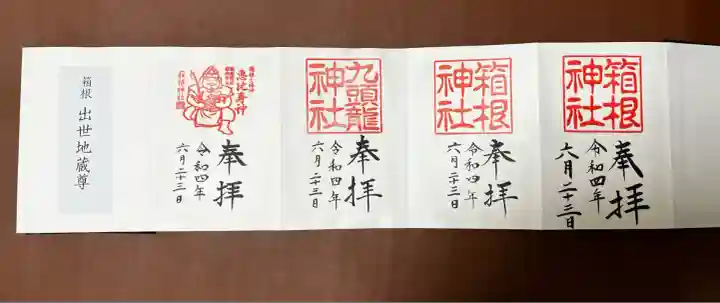 箱根
神社
奉拝
令和四年
六月二十三日
箱根
神社
奉拝
令和四年
六月二十三日
九頭龍
神社
奉拝
令和四年
六月二十三日
恵比寿神
箱根神社
奉拝
令和四年
六月二十三日
箱根 出世地蔵尊